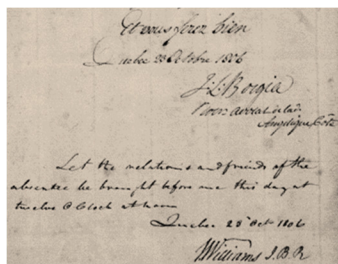 Et vous ferez bien
Quebec 28 Octobre 1806
J: L: Borgia
Angelique Coté
Let the relations and friends of the
absentee be brought before me this day at
twelve O Clock at noon
Quebec 28 Oct 1806
Williams J. B. R